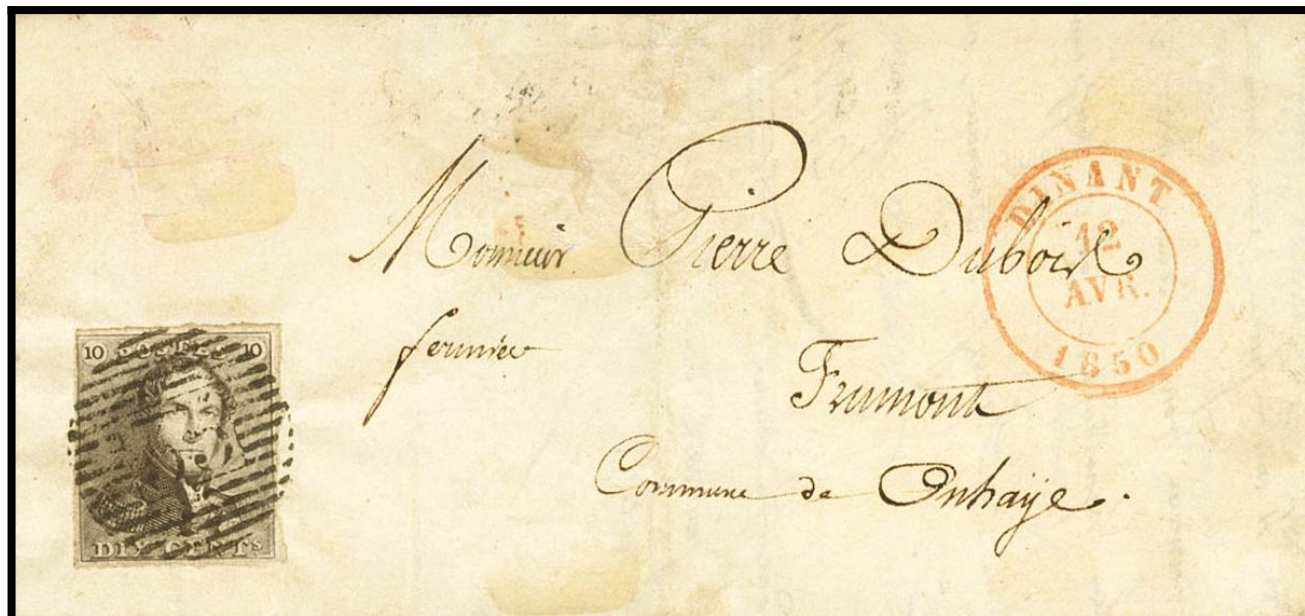 Monsieur Pierre Dubois
fermier
Frumont
Commune de Onhaye.
DINANT
12
AVR.
1850
10 POSTES 10
DIX CENTS